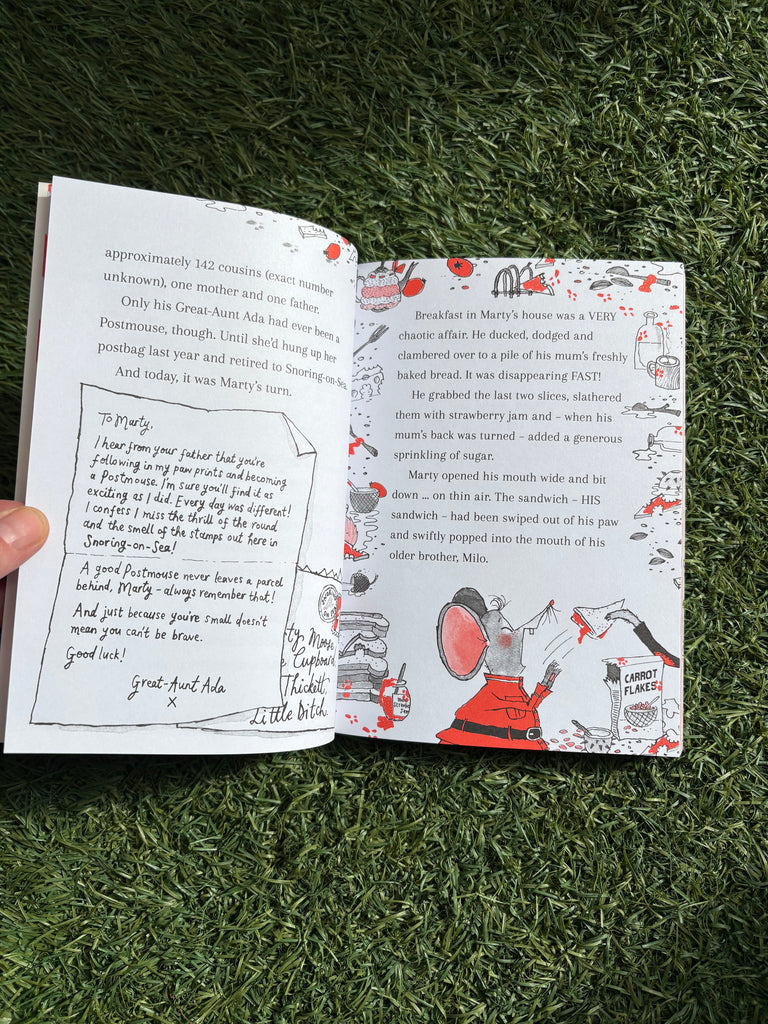 approximately 142 cousins (exact number
unknown), one mother and one father.
Only his Great-Aunt Ada had ever been a
Postmouse, though. Until she'd hung up her
postbag last year and retired to Snoring-on-Sea.
And today, it was Marty's turn.
To Marty,
I hear from your father that you're
following in my paw prints and becoming
a Postmouse. I'm sure you'll find it as
exciting as I did. Every day was different!
I confess I miss the thrill of the round
and the smell of the stamps out here in
Snoring-on-Sea!
A good Postmouse never leaves a parcel
behind, Marty – always remember that!
And just because you're small doesn't
mean you can't be brave.
Good luck!
Great-Aunt Ada
x
Thickett,
Little Ditch.
Breakfast in Marty's house was a VERY
chaotic affair. He ducked, dodged and
clambered over to a pile of his mum's freshly
baked bread. It was disappearing FAST!
He grabbed the last two slices, slathered
them with strawberry jam and – when his
mum's back was turned – added a generous
sprinkling of sugar.
Marty opened his mouth wide and bit
down ... on thin air. The sandwich – HIS
sandwich – had been swiped out of his paw
and swiftly popped into the mouth of his
older brother, Milo.
CARROT
FLAKES